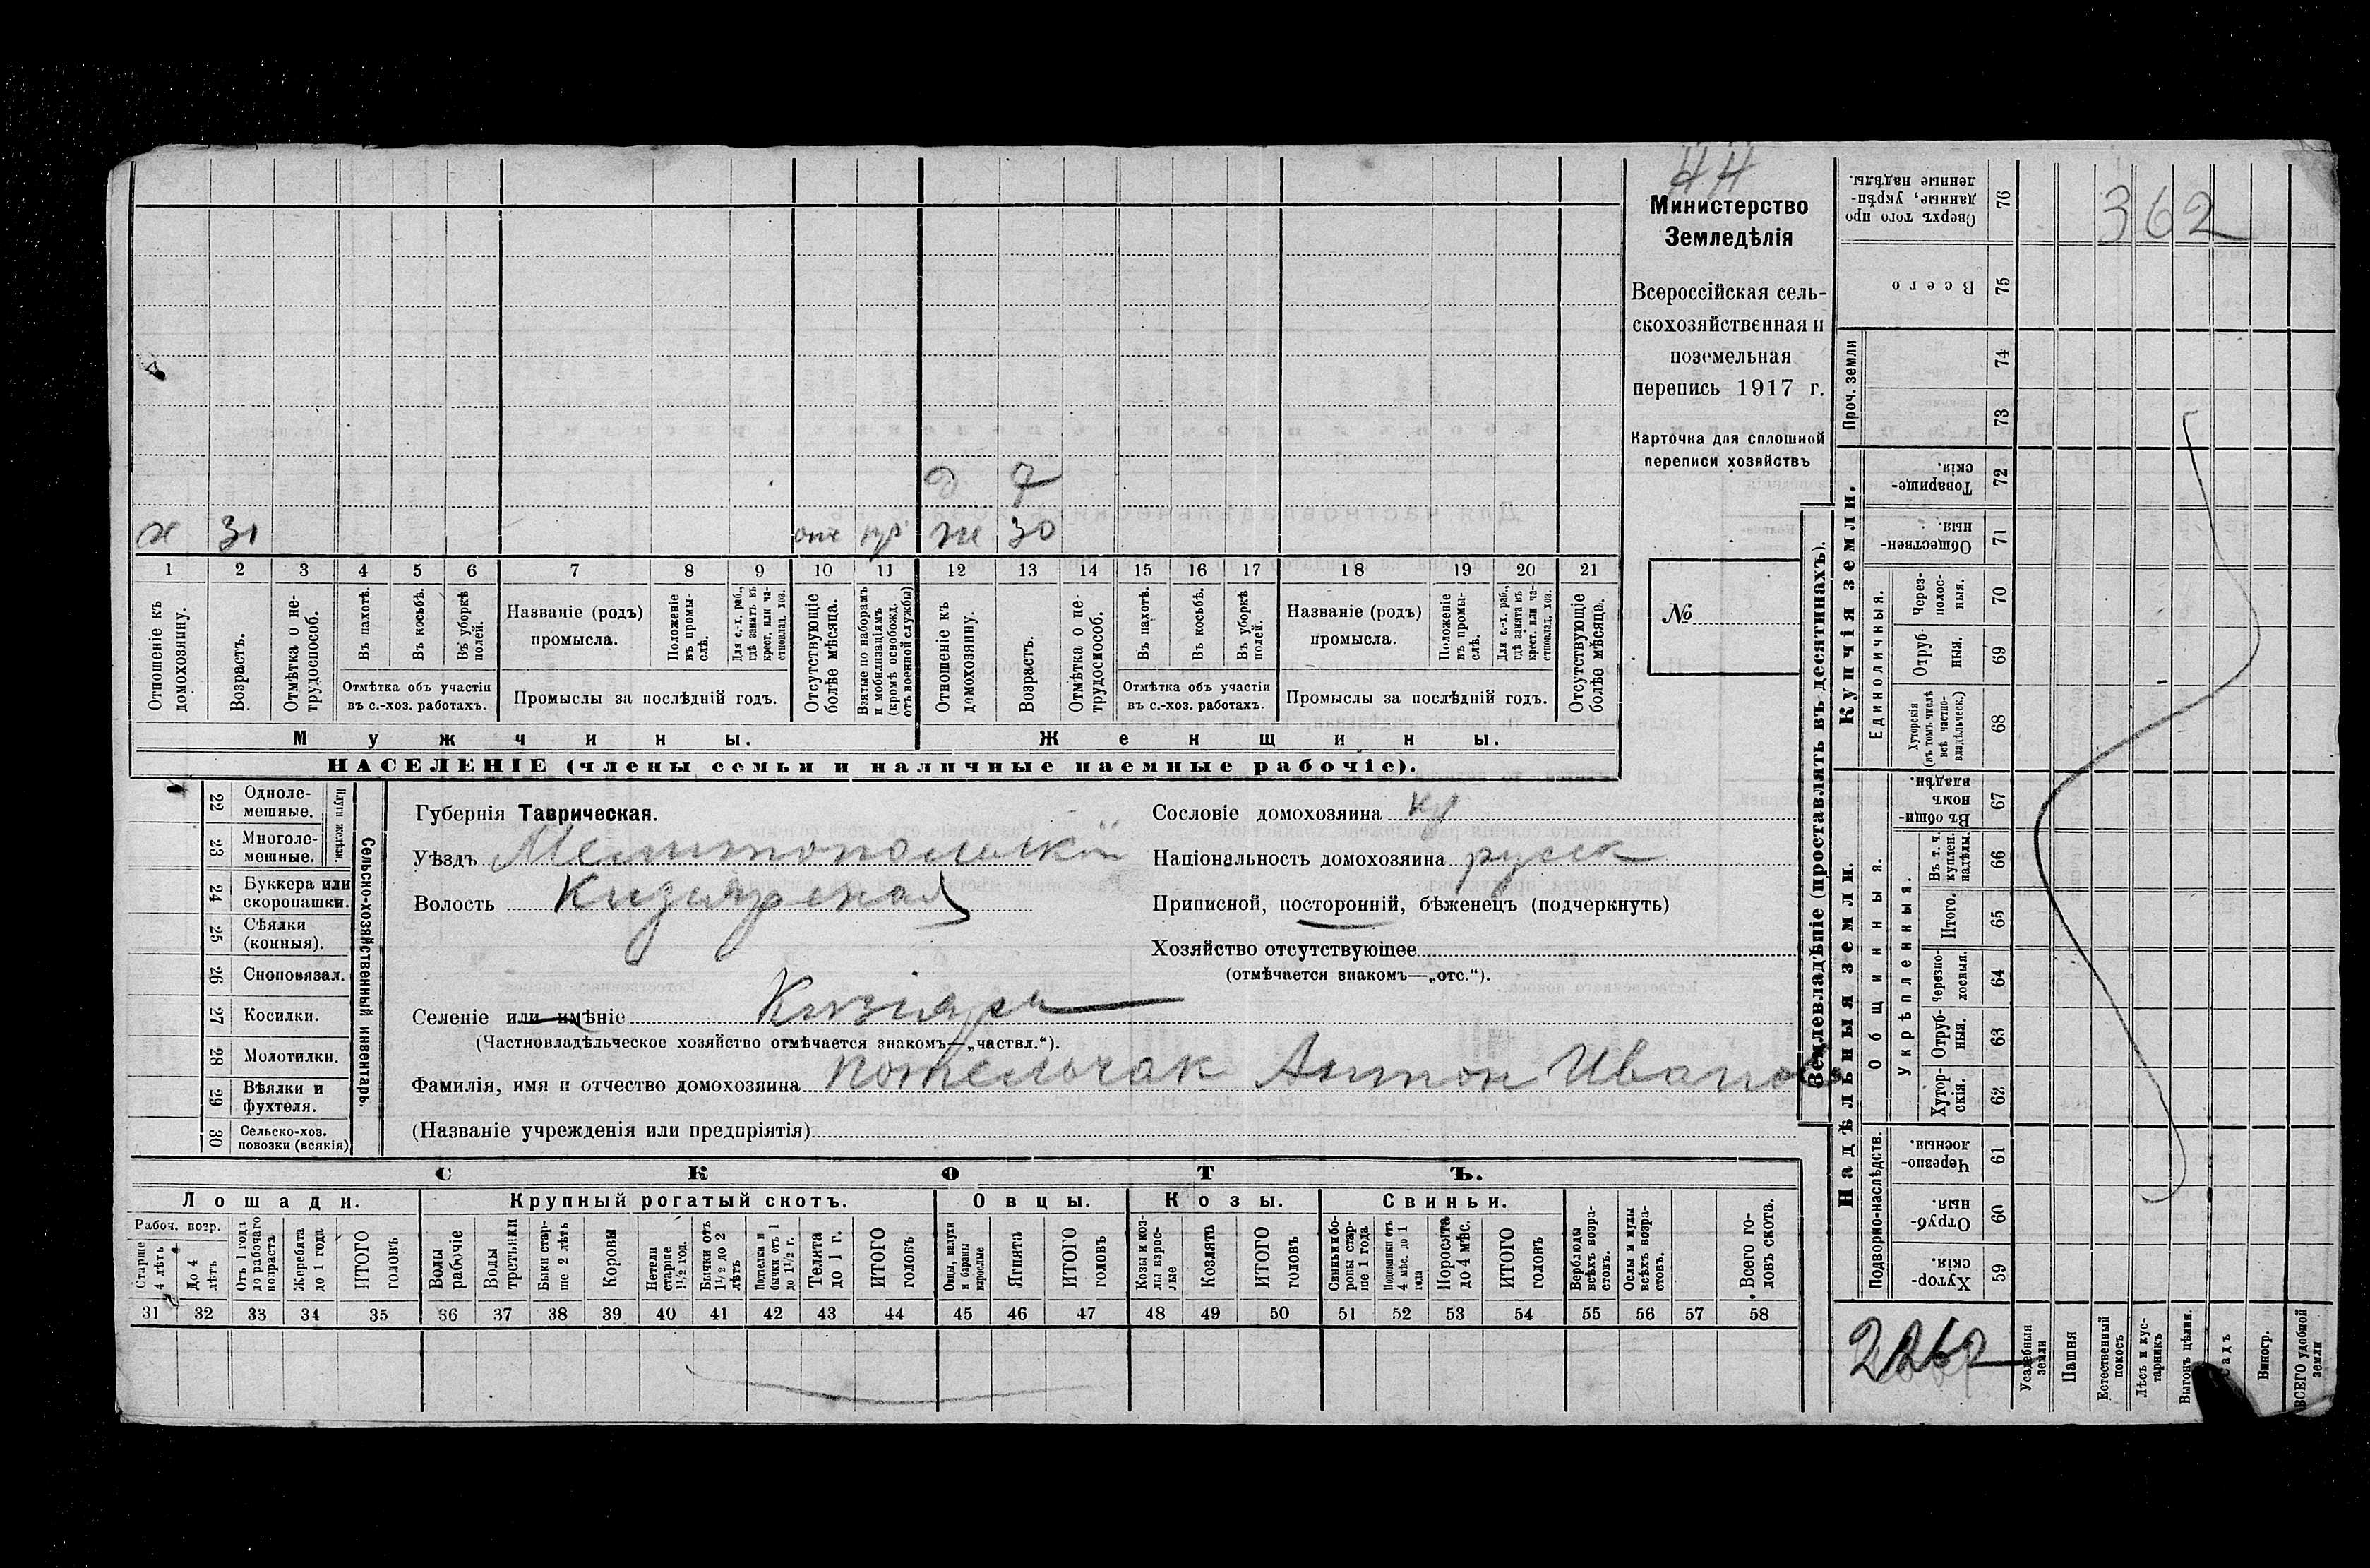 44
Министерство
Земледѣлія
Всероссійская сель-
скохозяйственная и
поземельная
перепись 1917 г.
Карточка для сплошной
переписи хозяйствъ
№
д 7
х 31 отс ж 30
1 2 3 4 5 6 7 8 9 10 11 12 13 14 15 16 17 18 19 20 21
Отношеніе къ домохозяину.
Возрастъ.
Отмѣтка о не-трудоспособ.
Въ пахотѣ.
Въ косьбѣ.
Въ уборкѣ полей.
Отмѣтка объ участіи
въ с.-хоз. работахъ.
Названіе (родъ)
промысла.
Положеніе въ промы-слѣ.
Для с.-х. раб., гдѣ занятъ въ крест. или ча-стновлад. хоз.
Промыслы за послѣдній годъ.
Отсутствующіе болѣе мѣсяца.
Взятые по наборамъ и мобилизаціямъ (кромѣ освобожд. отъ военной службы)
Отношеніе къ домохозяину.
Возрастъ.
Отмѣтка о не-трудоспособ.
Въ пахотѣ.
Въ косьбѣ.
Въ уборкѣ полей.
Отмѣтка объ участіи
въ с.-хоз. работахъ.
Названіе (родъ)
промысла.
Положеніе въ промы-слѣ.
Для с.-х. раб., гдѣ занята въ крест. или ча-стновлад. хоз.
Промыслы за послѣдній годъ.
Отсутствующіе болѣе мѣсяца.
Мужчины. Женщины.
НАСЕЛЕНІЕ (члены семьи и наличные наемные рабочіе).
Сельско-хозяйственный инвентарь.
Плуги желѣзн.
22 Одноле-мешные.
23 Многоле-мешные.
24 Буккера или скоропашки.
25 Сѣялки (конныя).
26 Сноповязал.
27 Косилки.
28 Молотилки.
29 Вѣялки и фухтеля.
30 Сельско-хоз. повозки (всякія)
Губернія Таврическая.
Уѣздъ Мелитопольскій
Волость Кизіярская
Селеніе или имѣніе Кизіяръ
(Частновладѣльческое хозяйство отмѣчается знакомъ—„частвл.“).
Фамилія, имя и отчество домохозяина Потельчак Антон Иванов
(Названіе учрежденія или предпріятія)
Сословіе домохозяина кр
Національность домохозяина русск
Приписной, посторонній, бѣженецъ (подчеркнуть)
Хозяйство отсутствующее
(отмѣчается знакомъ—„отс.“).
СКОТЪ.
Лошади. Крупный рогатый скотъ. Овцы. Козы. Свиньи.
Рабоч. возр.
Старше 4 лѣтъ
До 4 лѣтъ
Отъ 1 года до рабочаго возраста
Жеребята до 1 года
ИТОГО головъ
Волы рабочіе
Волы третьяки
Быки стар-ше 2 лѣтъ
Коровы
Нетели старше 1½ год.
Бычки отъ 1½ до 2 лѣтъ
Подтелки и бычки отъ 1 до 1½ г.
Телята до 1 г.
ИТОГО головъ
Овцы, валухи и бараны взрослые
Ягнята
ИТОГО головъ
Козы и коз-лы взрос-лые
Козлята
ИТОГО головъ
Свиньи и бо-ровы стар-ше 1 года
Подсвинки отъ 4 мѣс. до 1 года
Поросята до 4 мѣс.
ИТОГО головъ
Верблюды всѣхъ возра-стовъ.
Ослы и мулы всѣхъ возра-стовъ.
Всего го-ловъ скота.
31 32 33 34 35 36 37 38 39 40 41 42 43 44 45 46 47 48 49 50 51 52 53 54 55 56 57 58
Землевладѣніе (проставлять въ десятинахъ).
Купчія земли.
Надѣльныя земли.
362
76 Сверхъ того про-данные, укрѣп-ленные надѣлы.
75 Всего
Проч. земли
74
73
72 Товарище-скія.
71 Обществен-ныя.
Единоличныя.
70 Через-полос-ныя.
69 Отруб-ныя.
68 Хуторскія (въ томъ числѣ всѣ частно-владѣльческ.)
Общинныя.
67 Въ общи-номъ владѣн.
Укрѣпленныя.
66 Въ т. ч. куплен. надѣлы.
65 Итого.
64 Черезпо-лосныя.
63 Отруб-ныя.
62 Хутор-скія.
Подворно-наслѣдств.
61 Черезпо-лосныя.
60 Отруб-ныя.
59 Хутор-скія.
Усадебныя земли
Пашня
Естественный покосъ
Лѣсъ и кус-тарникъ
Выгонъ цѣлин.
Садъ
Виногр.
ВСЕГО удобной земли